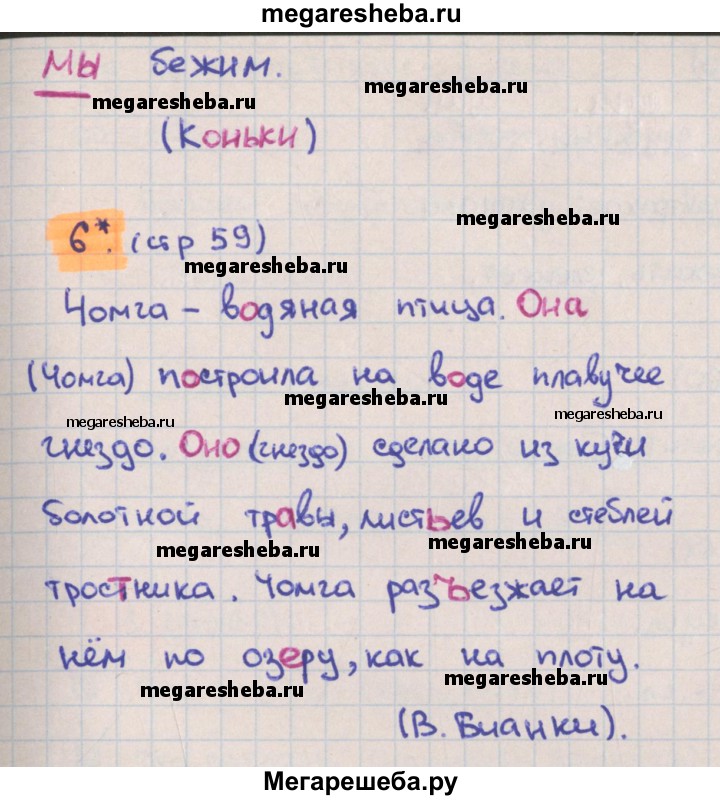 megaresheba.ru
Мы бежим.
megaresheba.ru
megaresheba.ru
(Коньки)
megaresheba.ru
6*. (стр 59)
megaresheba.ru
Чомга – водяная птица. Она
(Чомга) построила на воде плавучее
megaresheba.ru
megaresheba.ru
megaresheba.ru
гнездо. Оно (гнездо) сделано из кучи
болотной травы, листьев и стеблей
megaresheba.ru
megaresheba.ru
тростника. Чомга разъезжает на
нём по озеру, как на плоту.
megaresheba.ru
megaresheba.ru
(В. Бианки).
Мегарешеба.ру